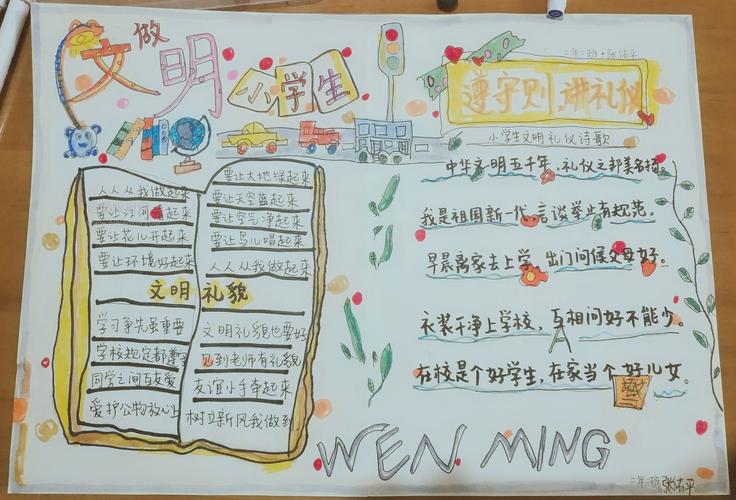 做
文明
小学生
二年二班·张佑平
遵守则 讲礼仪
小学生文明礼仪诗歌
中华文明五千年,礼仪之邦美名扬。
我是祖国新一代,言谈举止有规范。
早晨离家去上学,出门问候父母好。
衣装干净上学校,互相问好不能少。
在校是个好学生,在家当个好儿女。
人人从我做起来
要让江河清起来
要让花儿开起来
要让环境好起来
要让大地绿起来
要让天空蓝起来
要让空气净起来
要让鸟儿唱起来
人人从我做起来
文明礼貌
学习争先虽重要
学校规定都遵守
同学之间互友爱
爱护公物放心上
文明礼貌也要好
见到老师有礼貌
友谊小手牵起来
树立新风我做到
WEN MING
二年二班 张佑平